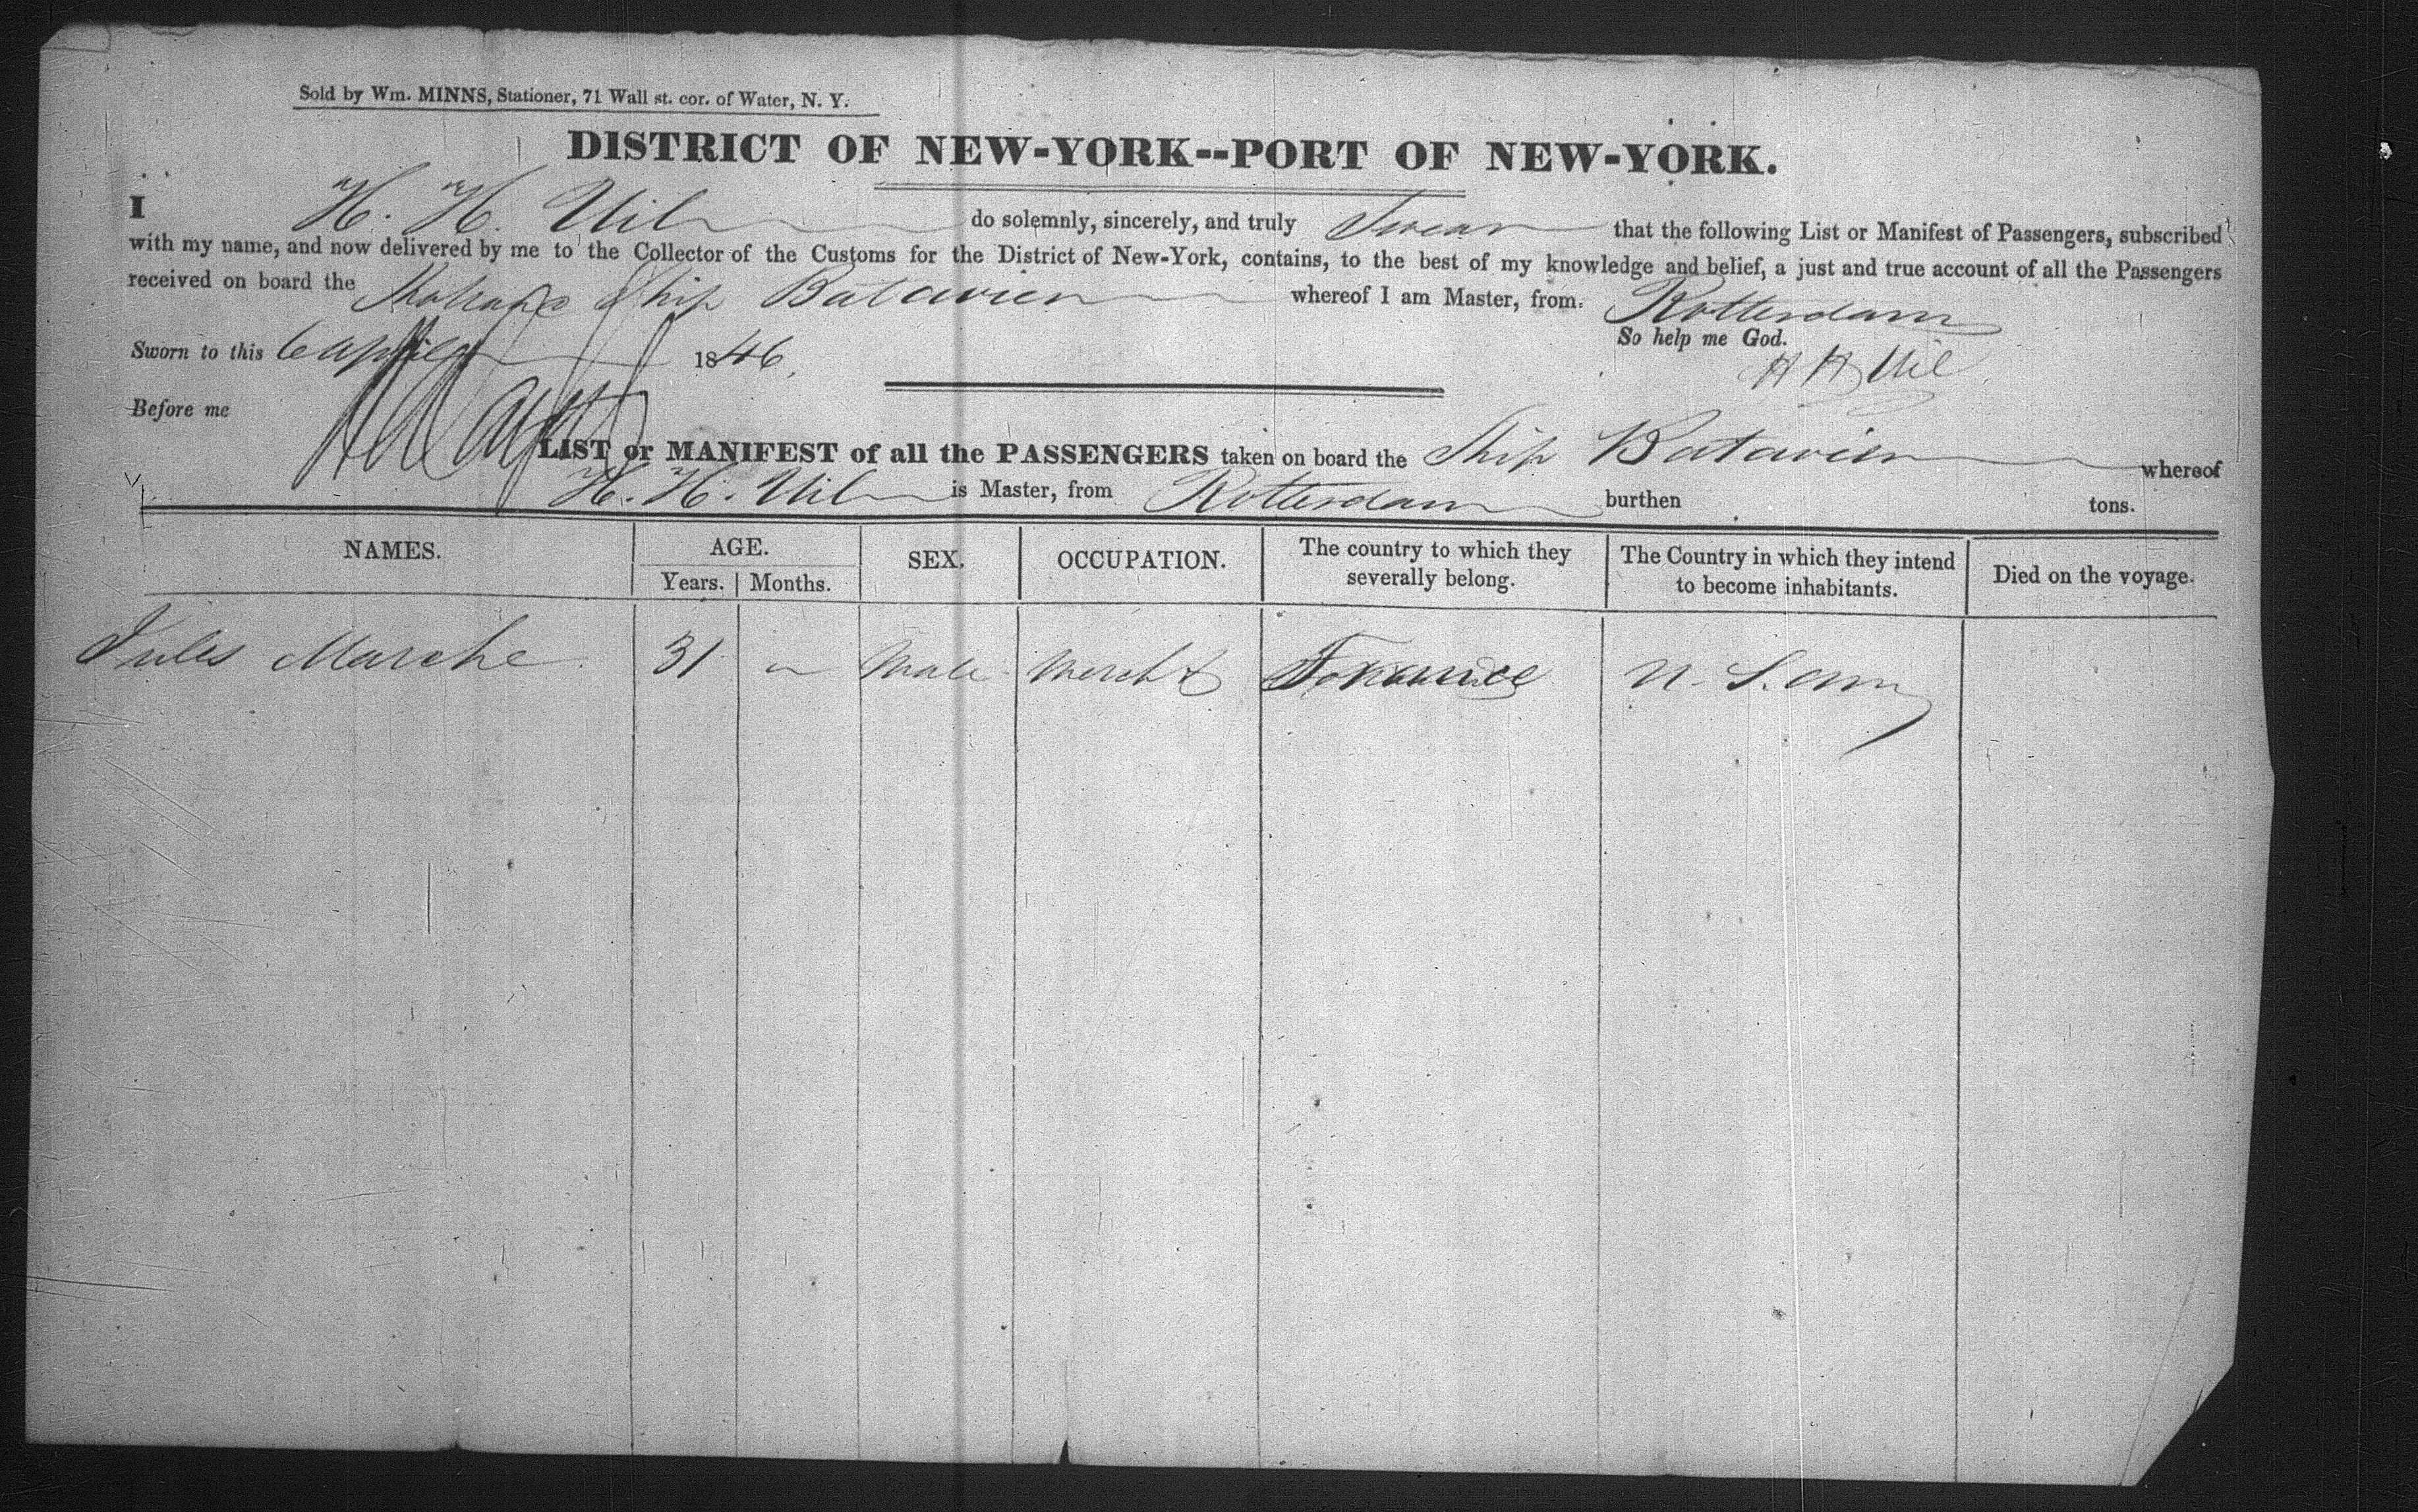 Sold by Wm. MINNS, Stationer, 71 Wall st. cor. of Water, N. Y.
DISTRICT OF NEW-YORK--PORT OF NEW-YORK.
I H. H. Uil do solemnly, sincerely, and truly Swear that the following List or Manifest of Passengers, subscribed
with my name, and now delivered by me to the Collector of the Customs for the District of New-York, contains, to the best of my knowledge and belief, a just and true account of all the Passengers
received on board the Ship Batavier whereof I am Master, from Rotterdam
So help me God.
Sworn to this 6 april 1846.
H H Uil
Before me
LIST or MANIFEST of all the PASSENGERS taken on board the Ship Batavier whereof
H. H. Uil is Master, from Rotterdam burthen tons.
NAMES. AGE. SEX. OCCUPATION. The country to which they severally belong. The Country in which they intend to become inhabitants. Died on the voyage.
Years. Months.
Jules Marche 31 Male Mercht France